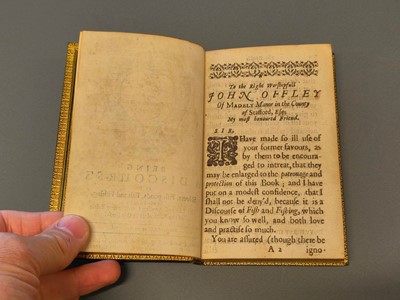 To the Right Worshipfull
JOHN OFFLEY
Of MADELY Manor in the County
of Stafford, Esq;
My most honoured Friend.
SIR,
I Have made so ill use of
your former favours, as
by them to be encoura-
ged to intreat, that they
may be enlarged to the patronage and
protection of this Book; and I have
put on a modest confidence, that I
shall not be deny'd, because it is a
Discourse of Fish and Fishing, which
you know so well, and both love
and practise so much.
You are assured (though there be
A 2 igno-